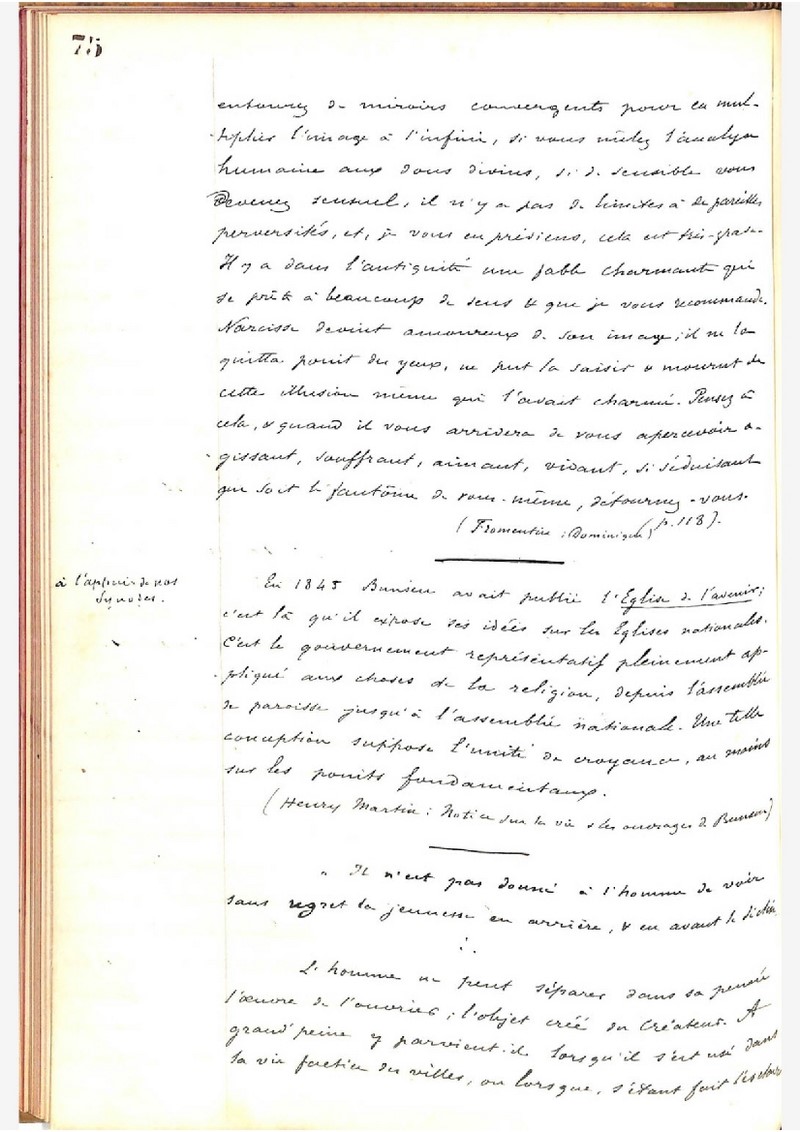 75
entourez de miroirs convergents pour en mul-
tiplier l'image à l'infini, si vous mêlez l'analyse
humaine aux dons divins, si de sensible vous
devenez sensuel, il n'y a pas de limites à de pareilles
perversités, et, je vous en préviens, cela est très-grave.
Il y a dans l'antiquité une fable charmante qui
se prête à beaucoup de sens & que je vous recommande.
Narcisse devint amoureux de son image; il ne la
quitta point des yeux, ne put la saisir & mourut de
cette illusion même qui l'avait charmé. Pensez à
cela, & quand il vous arrivera de vous apercevoir a-
gissant, souffrant, aimant, vivant, si séduisant
que soit le fantôme de vous-même, détournez-vous.
(Fromentin: Dominique, p. 118).
à l'appui de nos
Synodes.
En 1845 Bunsen avait publié l'Eglise de l'avenir;
c'est là qu'il expose ses idées sur les Eglises nationales.
C'est le gouvernement représentatif pleinement ap-
pliqué aux choses de la religion, depuis l'assemblée
de paroisse jusqu'à l'assemblée nationale. Une telle
conception suppose l'unité de croyance, au moins
sur les points fondamentaux.
(Henry Martin: Notice sur la vie & les ouvrages de Bunsen)
" Il n'est pas donné à l'homme de voir
sans regret la jeunesse en arrière, & en avant le déclin
L'homme ne peut séparer dans sa pensée
l'œuvre de l'ouvrier; l'objet créé du Créateur. A
grand'peine y parvient-il lorsqu'il s'est usé dans
la vie factice des villes, ou lorsque, s'étant fait l'esclave